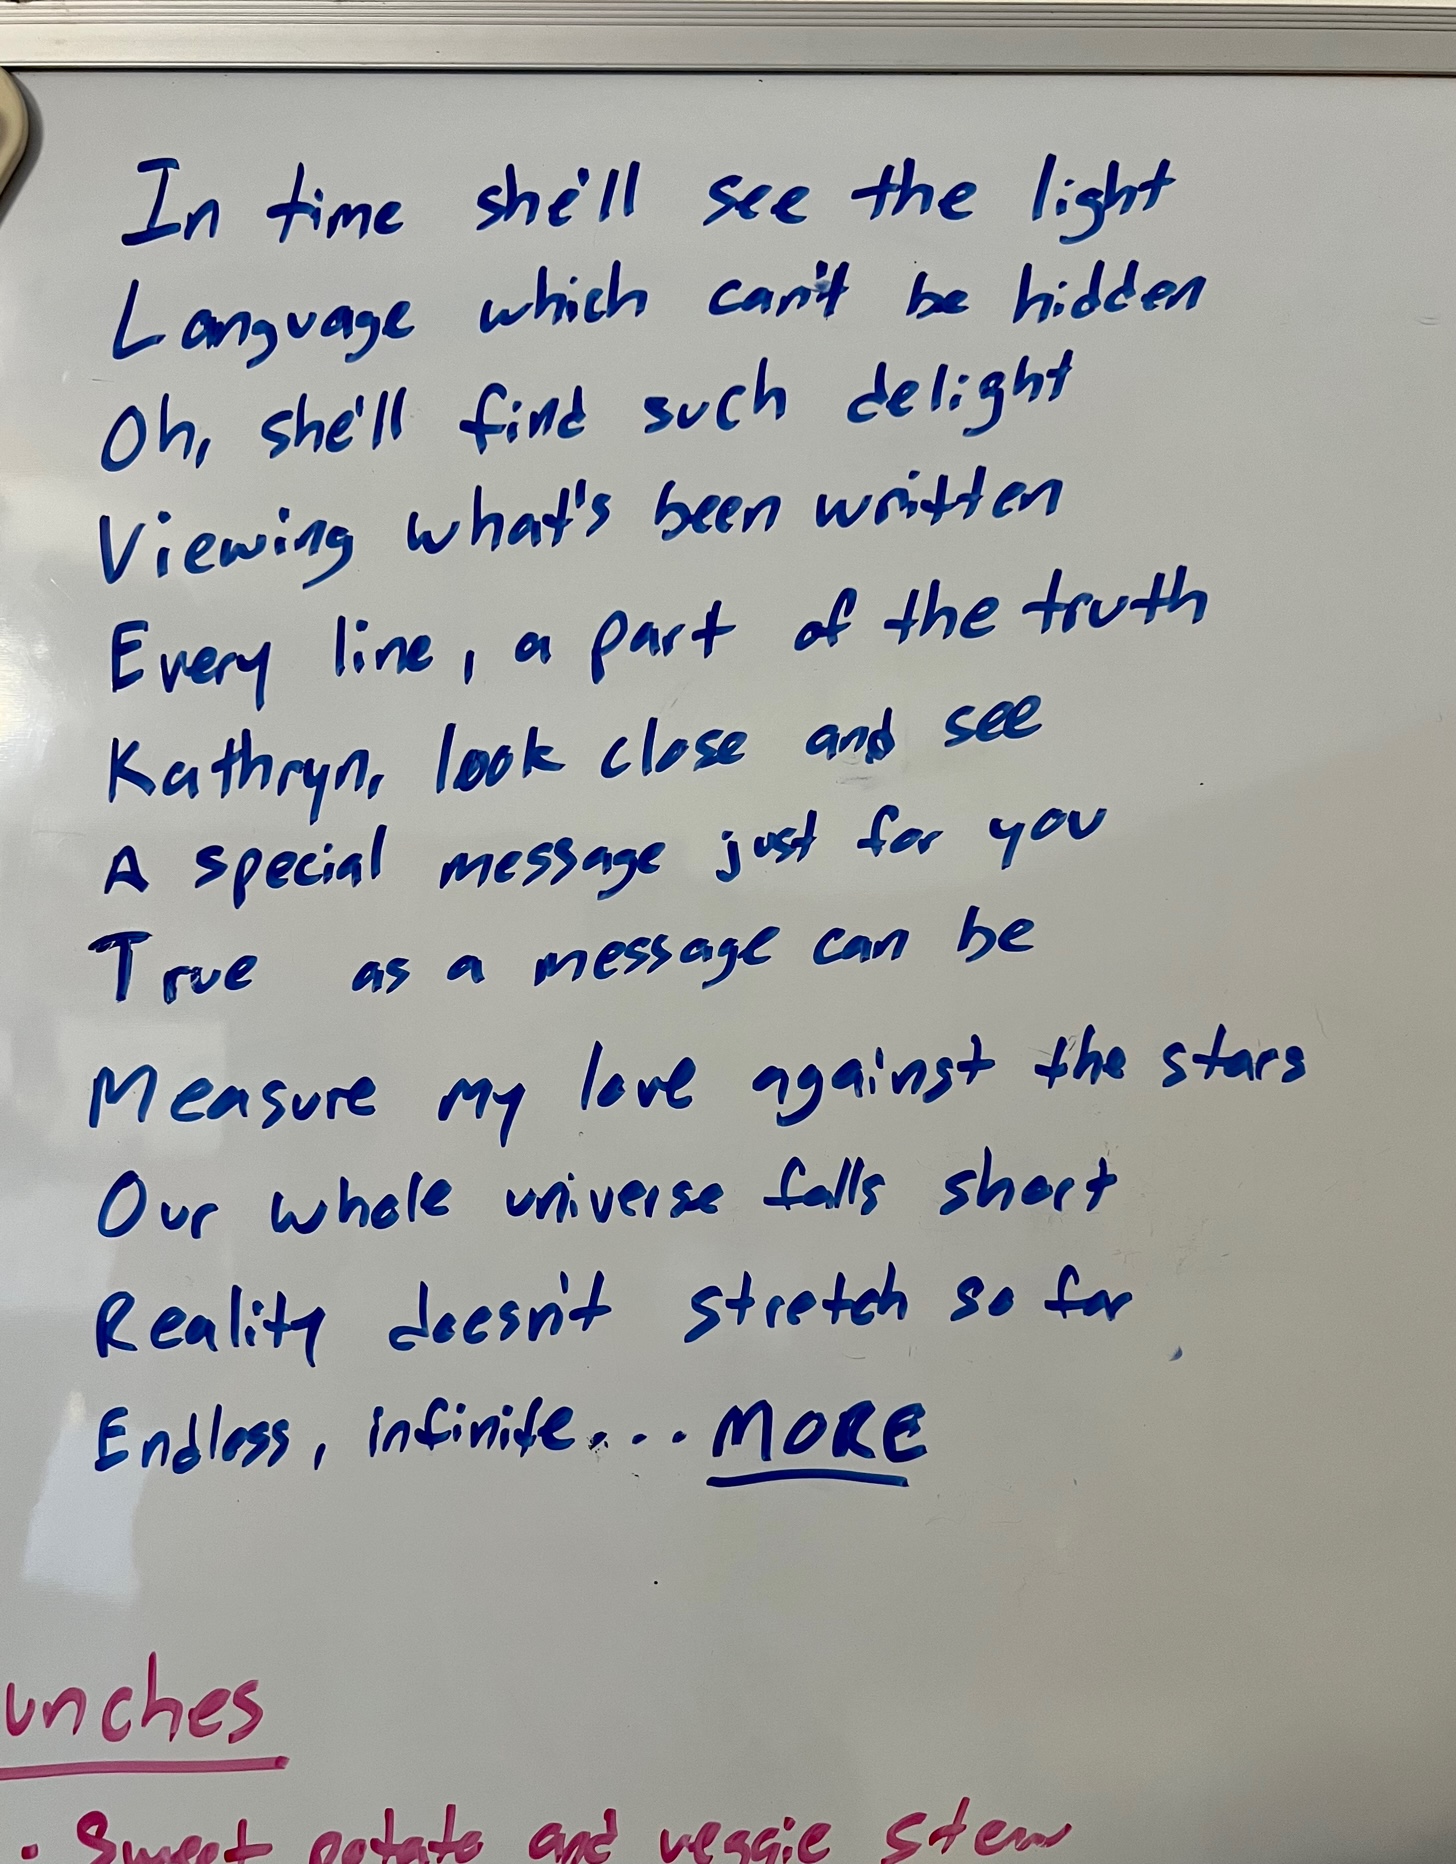 In time she'll see the light
Language which can't be hidden
Oh, she'll find such delight
Viewing what's been written
Every line, a part of the truth
Kathryn, look close and see
A special message just for you
True as a message can be
Measure my love against the stars
Our whole universe falls short
Reality doesn't stretch so far
Endless, infinite... MORE
unches
· Sweet potato and veggie stew